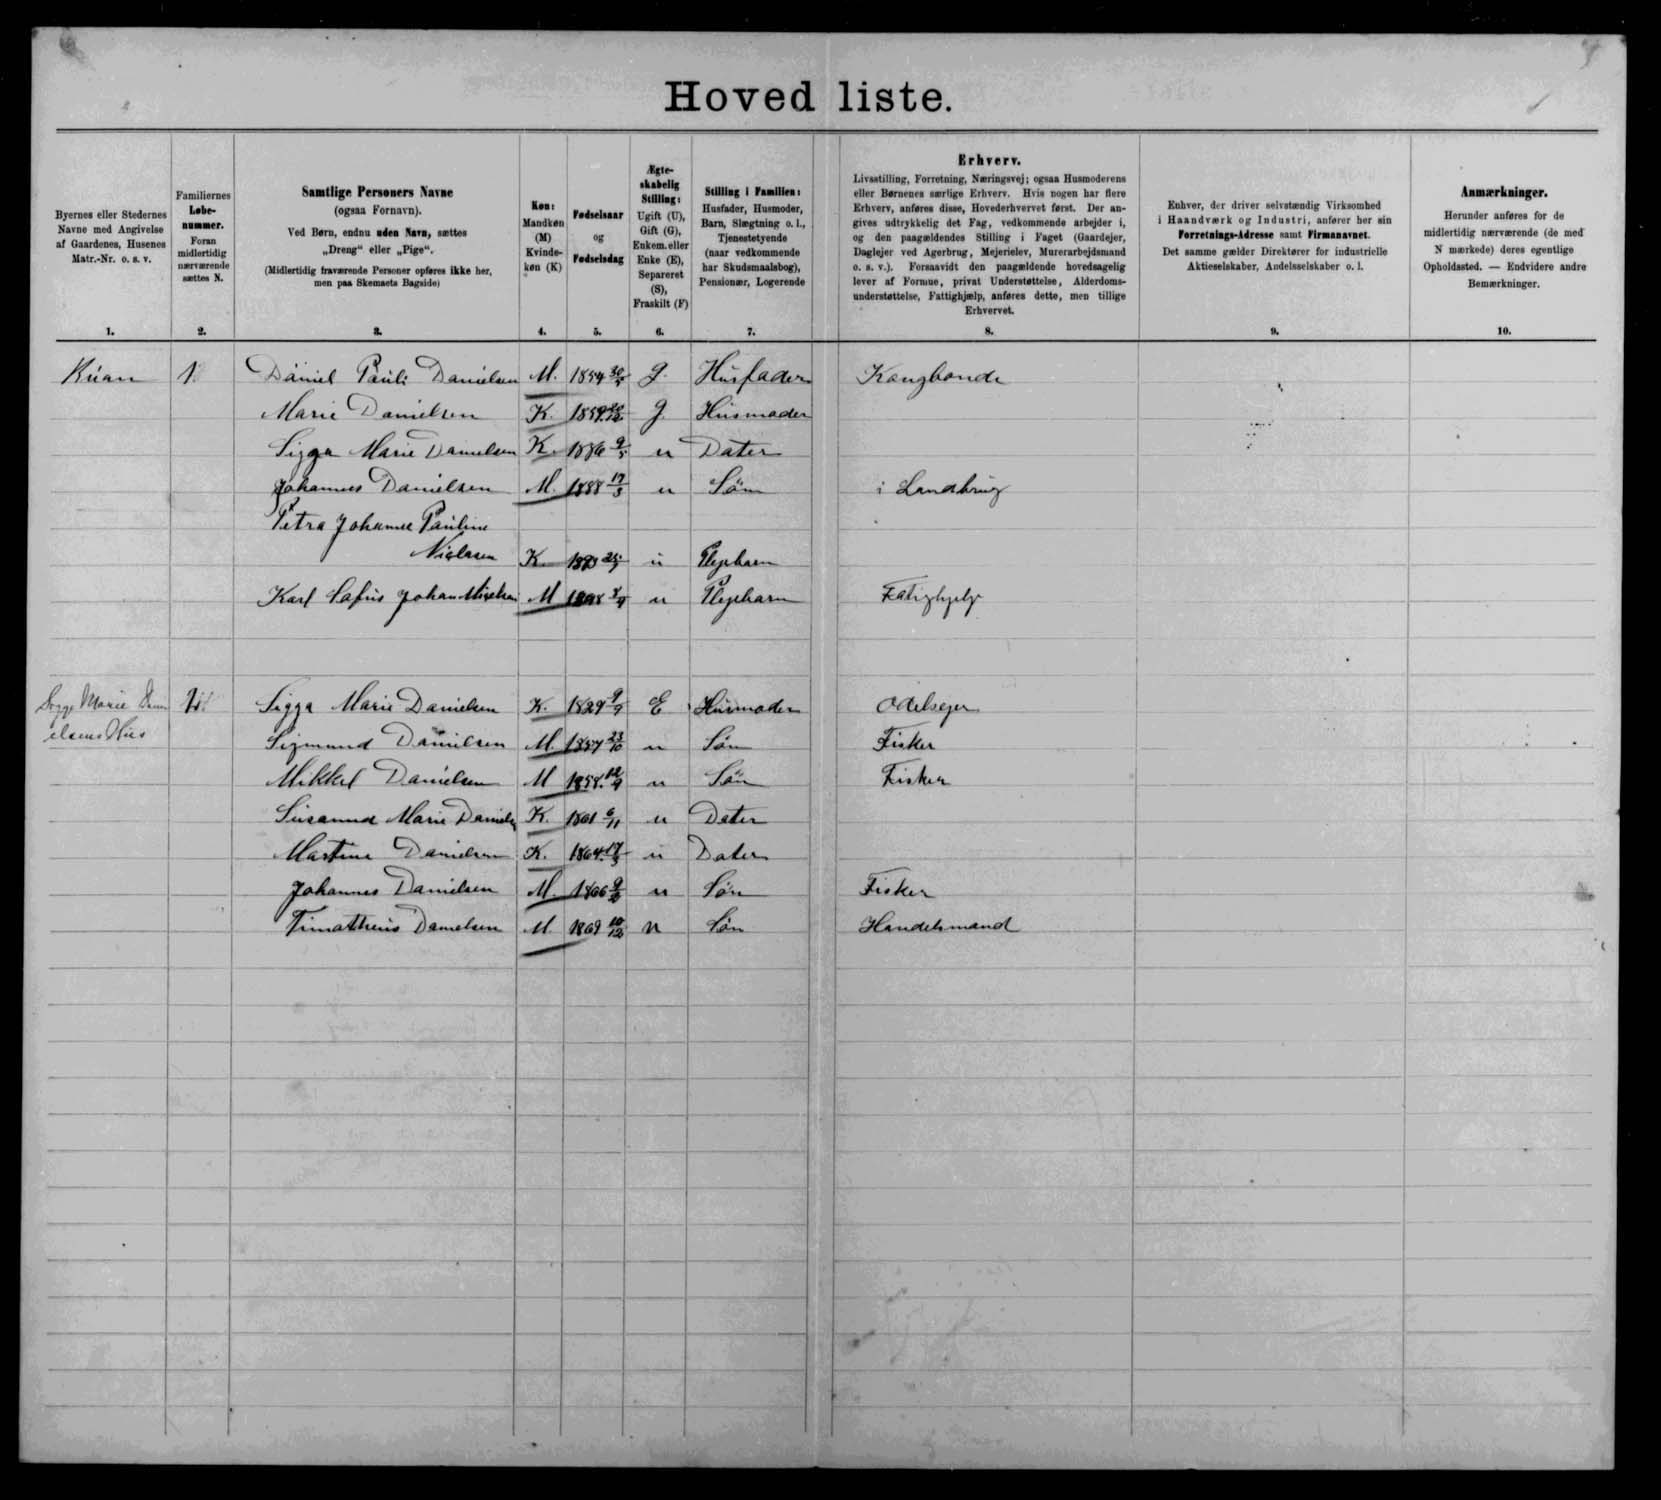 Hoved liste.
Byernes eller Stedernes
Navne med Angivelse
af Gaardenes, Husenes
Matr.-Nr. o. s. v.
1.
Familiernes
Løbe-
nummer.
Foran
midlertidig
nærværende
sættes N.
2.
Samtlige Personers Navne
(ogsaa Fornavn).
Ved Børn, endnu uden Navn, sættes
„Dreng“ eller „Pige“.
(Midlertidig fraværende Personer opføres ikke her,
men paa Skemaets Bagside)
3.
Køn:
Mandkøn
(M)
Kvinde-
køn (K)
4.
Fødselsaar
og
Fødselsdag
5.
Ægte-
skabelig
Stilling:
Ugift (U),
Gift (G),
Enkem. eller
Enke (E),
Separeret
(S),
Fraskilt (F)
6.
Stilling i Familien:
Husfader, Husmoder,
Barn, Slægtning o. l.,
Tjenestetyende
(naar vedkommende
har Skudsmaalsbog),
Pensionær, Logerende
7.
Erhverv.
Livsstilling, Forretning, Næringsvej; ogsaa Husmoderens
eller Børnenes særlige Erhverv. Hvis nogen har flere
Erhverv, anføres disse, Hovederhvervet først. Der an-
gives udtrykkelig det Fag, vedkommende arbejder i,
og den paagældendes Stilling i Faget (Gaardejer,
Daglejer ved Agerbrug, Mejerielev, Murerarbejdsmand
o. s. v.). Forsaavidt den paagældende hovedsagelig
lever af Formue, privat Understøttelse, Alderdoms-
understøttelse, Fattighjælp, anføres dette, men tillige
Erhvervet.
8.
Enhver, der driver selvstændig Virksomhed
i Haandværk og Industri, anfører her sin
Forretnings-Adresse samt Firmanavnet.
Det samme gælder Direktører for industrielle
Aktieselskaber, Andelsselskaber o. l.
9.
Anmærkninger.
Herunder anføres for de
midlertidig nærværende (de med
N mærkede) deres egentlige
Opholdssted. — Endvidere andre
Bemærkninger.
10.
Kúan 1 Daniel Pauli Danielsen M. 1854 G. Húsfader Kongbonde
Marie Danielsen K. G. Húsmoder
Sigga Marie Danielsen K. 1886 9/5 u Dater
Johannes Danielsen M. 1888 17/3 u Søn i Landbrug
Petra Johanne Pauline
Nielsen K. u Plejebarn
Karl Johan M u Plejebarn Fatighjelp
Marie
elsens Hús
Sigga Marie Danielsen K. 1829 9/9 E Húsmoder Odelsejer
Sigmund Danielsen M. 1857 23/10 u Søn Fisker
Mikkel Danielsen M u Søn Fisker
Súsanna Marie K. 1861 6/11 u Dater
Martine Danielsen K. 1864 u Dater
Johannes Danielsen M. 1866 u Søn Fisker
Timatheus Danielsen M. 1869 10/12 u Søn Handelsmand